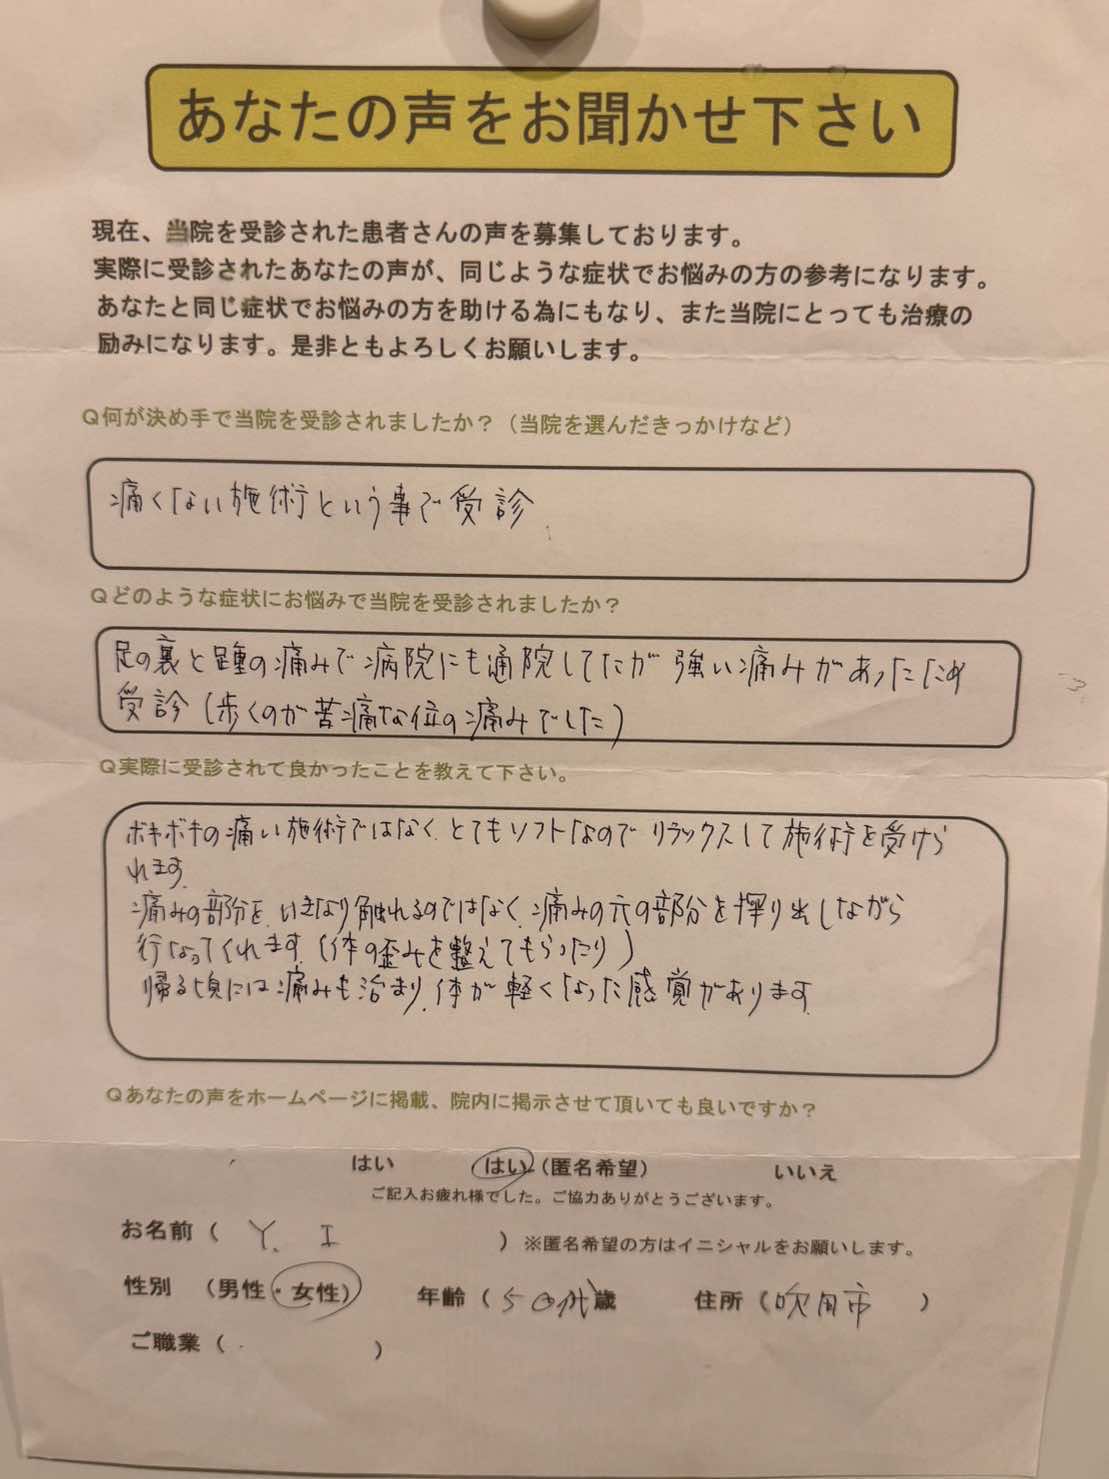 あなたの声をお聞かせ下さい
現在、当院を受診された患者さんの声を募集しております。
実際に受診されたあなたの声が、同じような症状でお悩みの方の参考になります。
あなたと同じ症状でお悩みの方を助ける為にもなり、また当院にとっても治療の
励みになります。是非ともよろしくお願いします。
Q何が決め手で当院を受診されましたか？（当院を選んだきっかけなど）
痛くない施術という事で受診
Qどのような症状にお悩みで当院を受診されましたか？
足の裏と踵の痛みで病院にも通院してたが強い痛みがあったため
受診（歩くのが苦痛な位の痛みでした）
Q実際に受診されて良かったことを教えて下さい。
ボキボキの痛い施術ではなく、とてもソフトなのでリラックスして施術を受けら
れます。
痛みの部分を、いきなり触れるのではなく、痛みの元の部分を探り出しながら
行なってくれます。（体の歪みを整えてもらったり）
帰る頃には痛みも治まり、体が軽くなった感覚があります。
Qあなたの声をホームページに掲載、院内に掲示させて頂いても良いですか？
はい はい（匿名希望） いいえ
ご記入お疲れ様でした。ご協力ありがとうございます。
お名前（ Y. I ）※匿名希望の方はイニシャルをお願いします。
性別 （男性・女性） 年齢（50代）歳 住所（吹田市 ）
ご職業（ ）